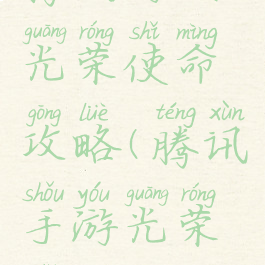 guāng róng shǐ mìng
光荣使命
gōng lüè téng xùn
攻略(腾讯
shǒu yóu guāng róng
手游光荣